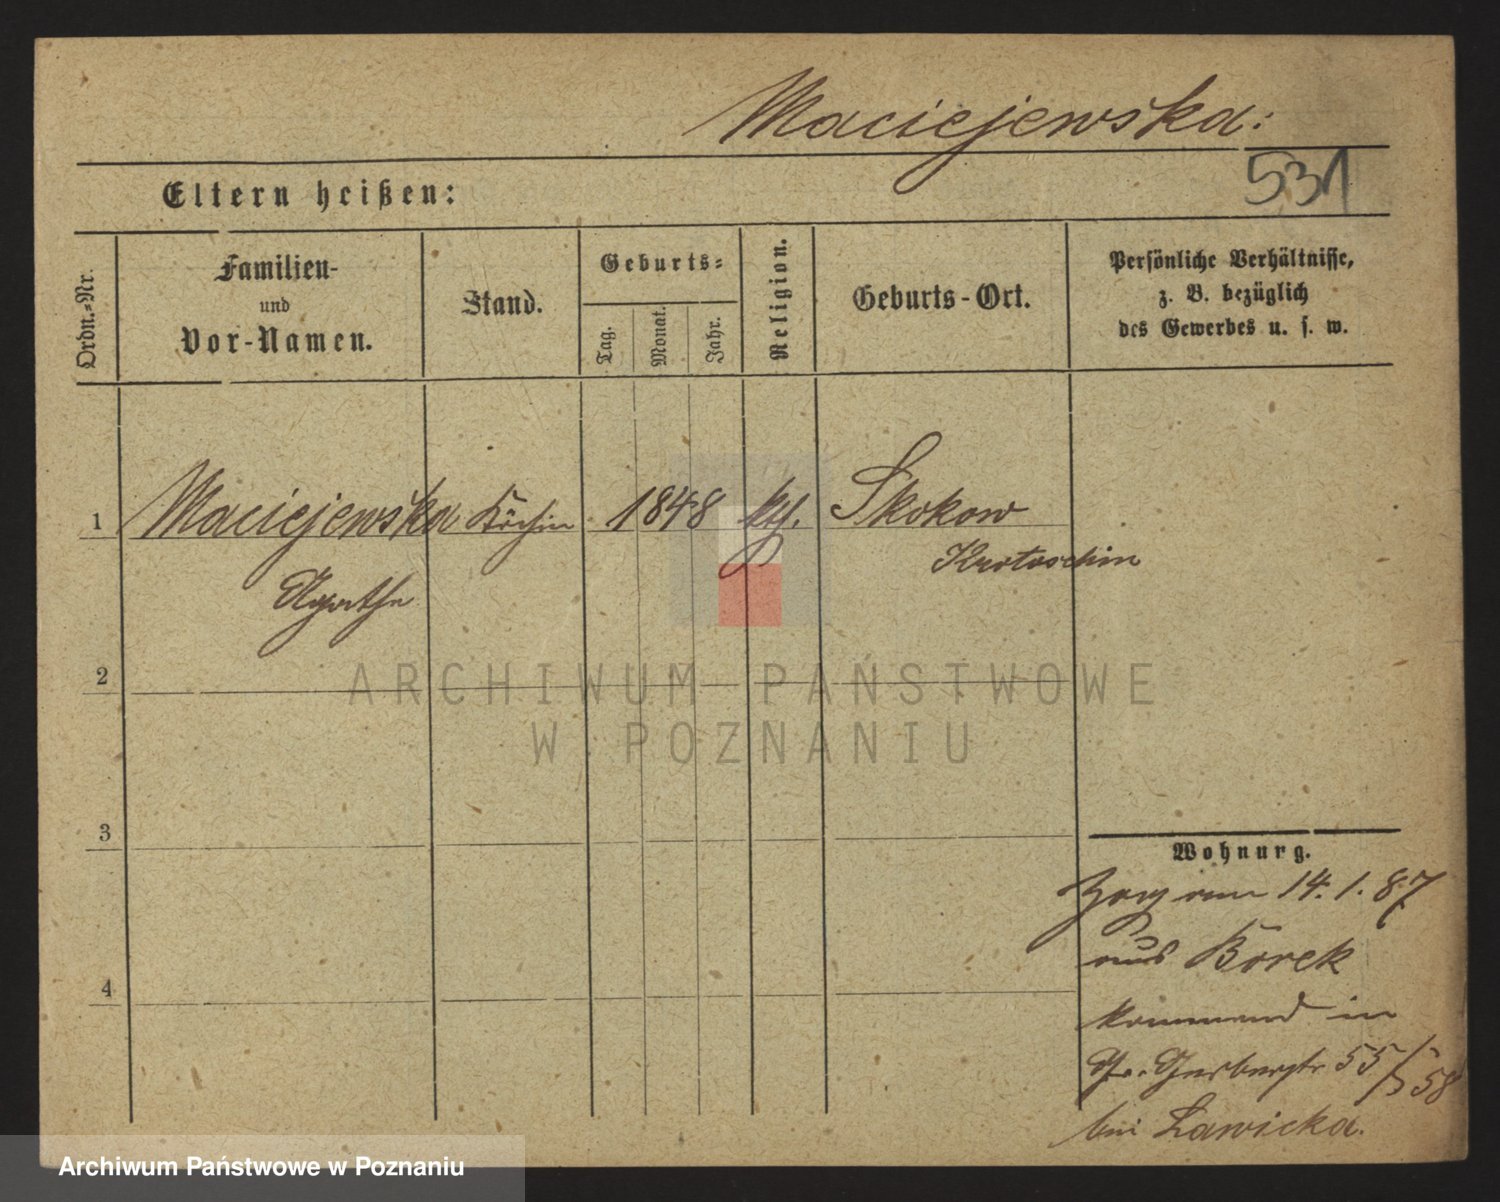 Maciejewska:
531
Eltern heißen:
Ordn.-Nr.
Familien-
und
Vor-Namen.
Stand.
Geburts-
Tag.
Monat.
Jahr.
Religion.
Geburts-Ort.
Persönliche Verhältnisse,
z. B. bezüglich
des Gewerbes u. s. w.
1 Maciejewska Köchin 1848 kth. Skokow
Krotoschin
Agathe
2
ARCHIWUM PAŃSTWOWE
W POZNANIU
3
Wohnung.
Zog am 14.1.87
aus Borek
kommend in
Gr. Gerberstr 55 / 58
bei Lawicka.
4
Archiwum Państwowe w Poznaniu